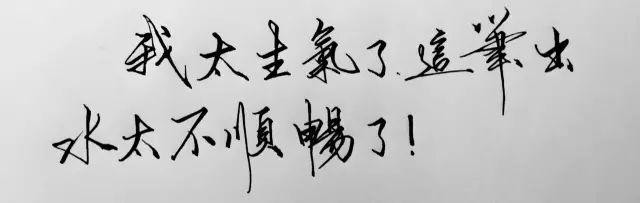 我太生氣了.這筆出
水太不順暢了!